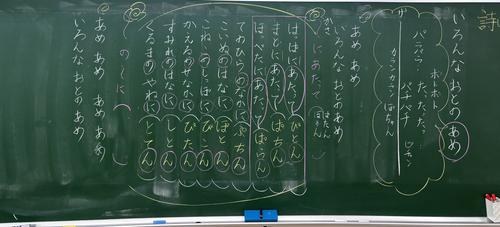 詩
いろんなおとのあめ
ポトポト
パラパラ たったったっ ピチャン
バチバチバチ
が
あめ あめ
いろんなおとのあめ
かさ にあたって
ぽたん
ぽつん
はっぱにあたって ぴとん
まどにあたって ぱちん
ほっぺたにあたって ぱらん
てのひらのなかに ぴちん
こいぬのはなに ぽとん
こねこのしっぽに ぴこん
かえるのせなかに ぴたん
すみれのはなに しとん
くるまのやねに とてん
の に
あめ あめ あめ あめ
いろんな おとの あめ